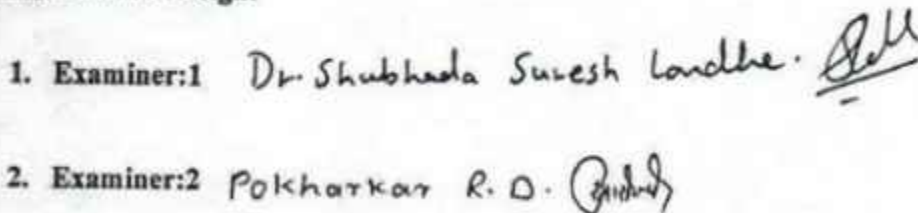 1. Examiner:1 Dr. Shubhada Suresh Londhe.
2. Examiner:2 Pokharkar R. D.